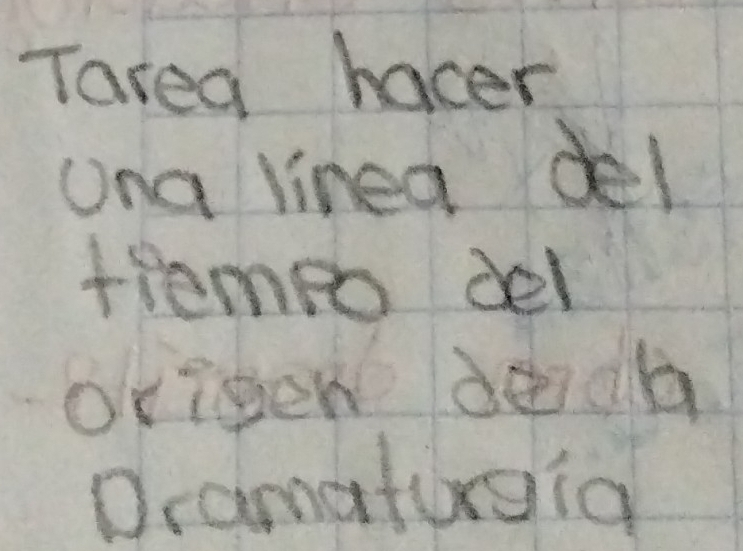 Tarea hacer
una línea del
tiempo del
origen de la
Dramaturgia